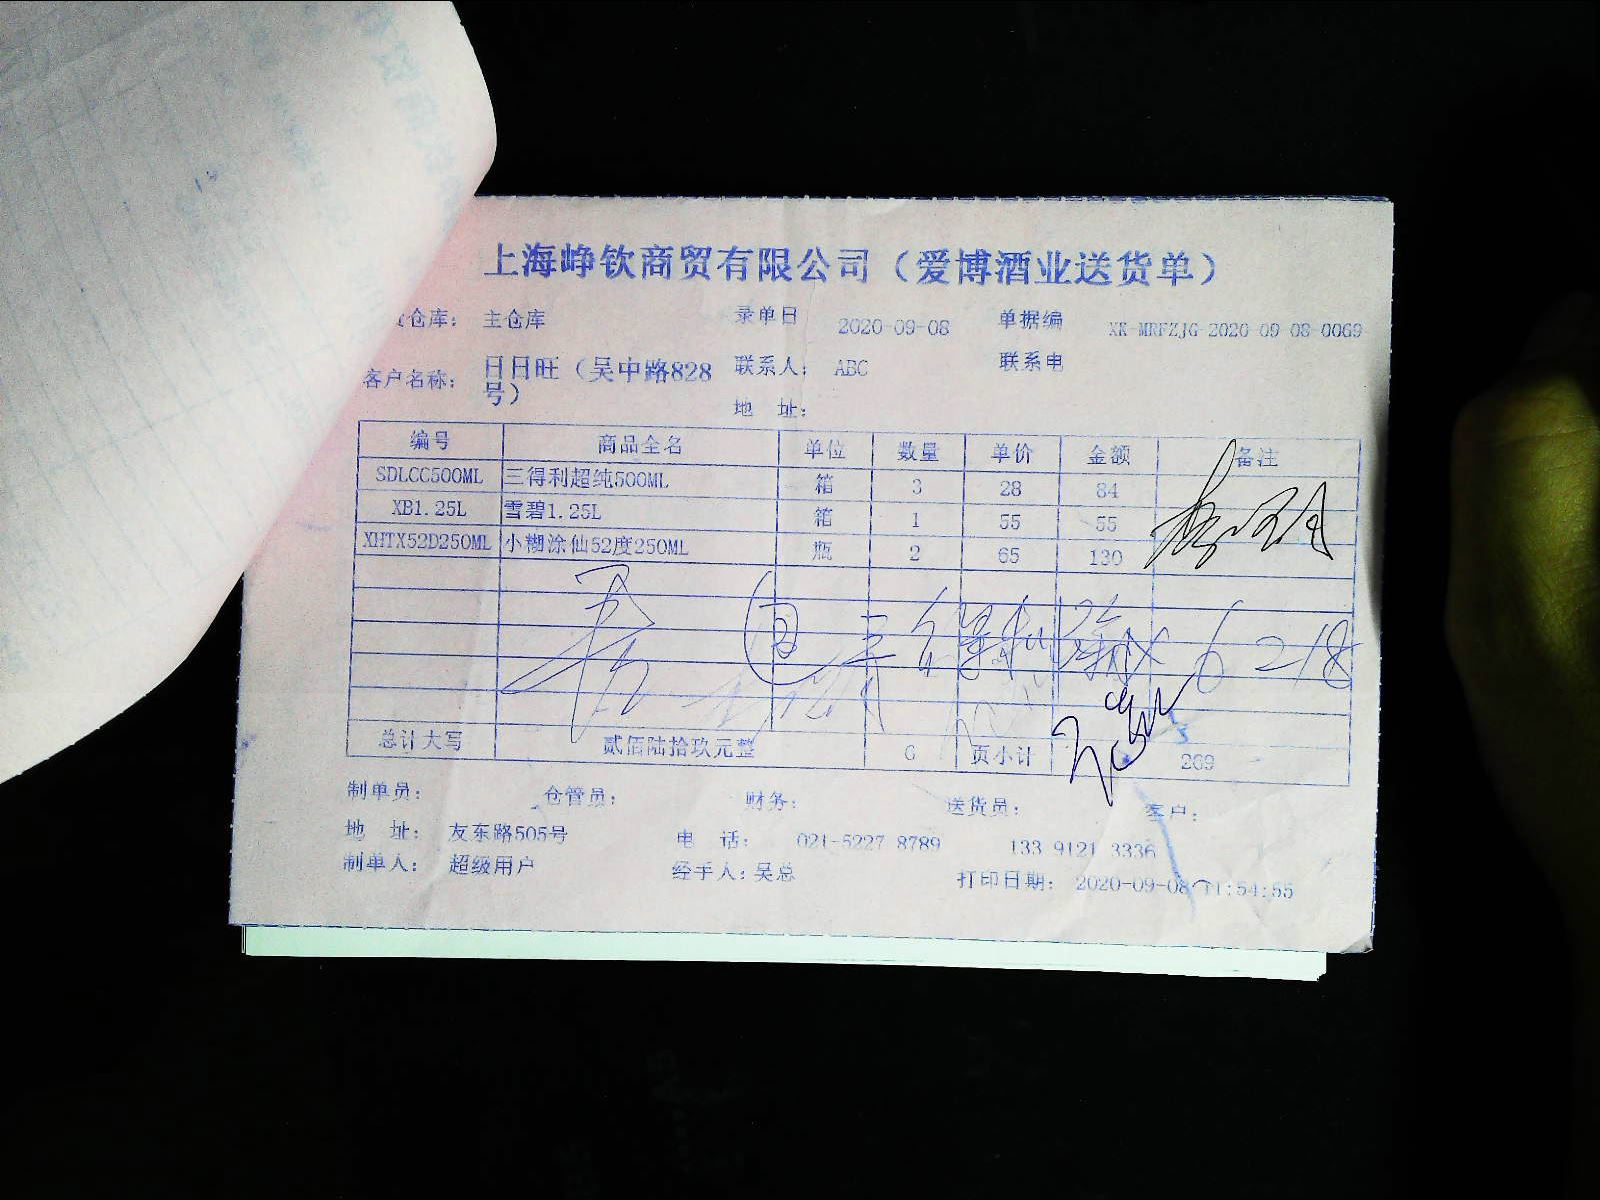 上海峥钦商贸有限公司（爱博酒业送货单）
仓库： 主仓库 录单日 2020-09-08 单据编 XK-MRFZJG-2020-09-08-0069
客户名称： 日日旺（吴中路828号） 联系人： ABC 联系电
地 址：
编号 商品全名 单位 数量 单价 金额 备注
SDLCC500ML 三得利超纯500ML 箱 3 28 84
XB1.25L 雪碧1.25L 箱 1 55 55
XHTX52D250ML 小糊涂仙52度250ML 瓶 2 65 130
6 218
总计大写 贰佰陆拾玖元整 6 页小计 269
制单员： 仓管员： 财务： 送货员： 客户：
地 址： 友东路505号 电 话： 021-5227 8789 133 9121 3336
制单人： 超级用户 经手人：吴总 打印日期： 2020-09-08 11:54:55